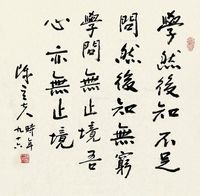 學然後知不足
問然後知無窮
學問無止境吾
心亦無止境
陳立夫
時年
九十六